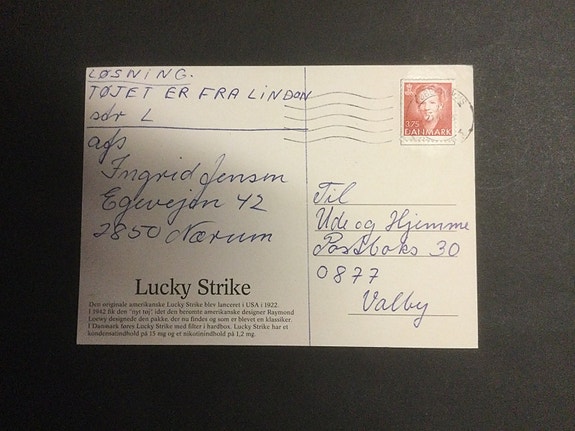 LØSNING.
TØJET ER FRA LINDON
sdr L
afs
Ingrid Jensen
Egevejen 42
2850 Nærum
Lucky Strike
Den originale amerikanske Lucky Strike blev lanceret i USA i 1922.
I 1942 fik den "nyt tøj" idet den berømte amerikanske designer Raymond
Loewy designede den pakke, der nu findes og som er blevet en klassiker.
I Danmark føres Lucky Strike med filter i hardbox. Lucky Strike har et
kondensatindhold på 15 mg og et nikotinindhold på 1,2 mg.
3.75
DANMARK
Til
Ude og Hjemme
Postboks 30
0877
Valby